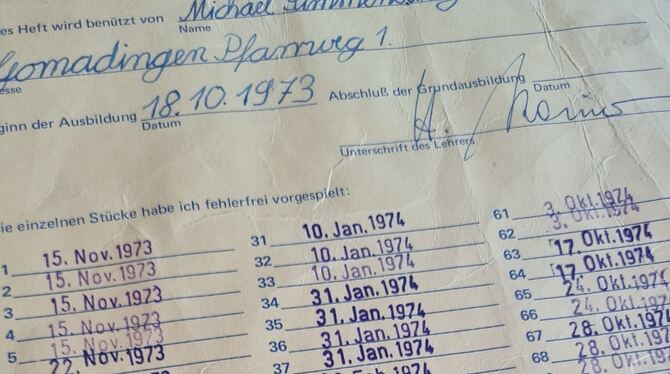 es Heft wird benützt von Michael
Name
Gomadingen Pfarrweg 1.
esse
ginn der Ausbildung 18.10.1973 Abschluß der Grundausbildung
Datum
Datum
Unterschrift des Lehrers
ie einzelnen Stücke habe ich fehlerfrei vorgespielt:
1 15. Nov. 1973 31 10. Jan. 1974 61 3. Okt. 1974
2 15. Nov. 1973 32 10. Jan. 1974 62 3. Okt. 1974
3 15. Nov. 1973 33 10. Jan. 1974 63 17. Okt. 1974
4 15. Nov. 1973 34 31. Jan. 1974 64 17. Okt. 1974
5 15. Nov. 1973 35 31. Jan. 1974 65 24. Okt. 1974
22. Nov. 1973 36 31. Jan. 1974 66 24. Okt. 1974
37 31. Jan. 1974 67 28. Okt. 1974
1974 68 28. Okt. 1974
28. Okt. 1974